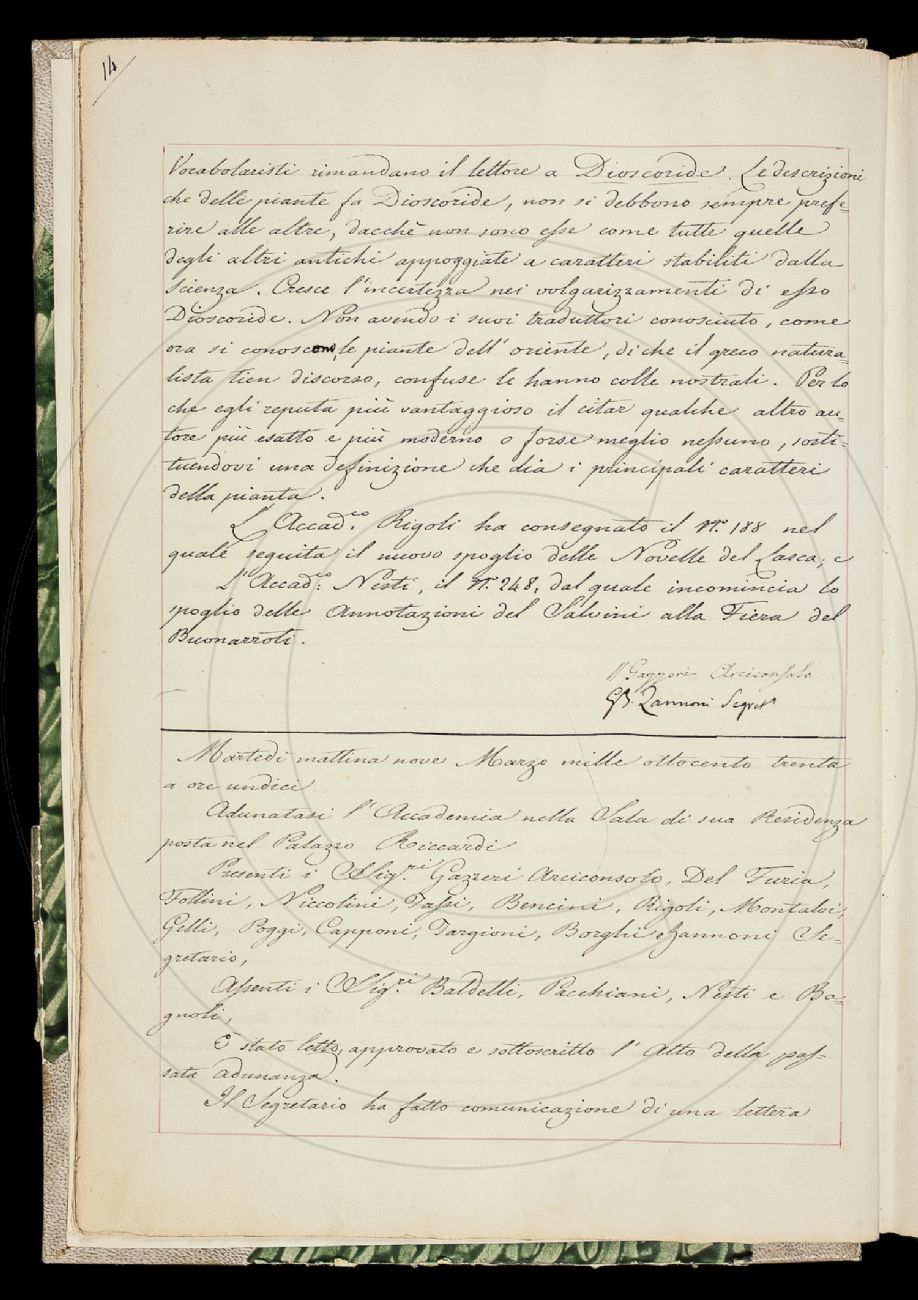 14
Vocabolaristi rimandano il lettore a Dioscoride. Le descrizioni
che delle piante fa Dioscoride, non si debbono sempre prefe=
rire alle altre, dacchè non sono esse come tutte quelle
degli altri antichi appoggiate a caratteri stabiliti dalla
scienza. Cresce l'incertezza nei volgarizzamenti di esso
Dioscoride. Non avendo i suoi traduttori conosciuto, come
ora si conoscono, le piante dell' oriente, di che il greco natura=
lista tien discorso, confuse le hanno colle nostrali. Per lo
che egli reputa più vantaggioso il citar qualche altro au=
tore più esatto e più moderno o forse meglio nessuno, sosti=
tuendovi una definizione che dia i principali caratteri
della pianta.
L'Accad.co Rigoli ha consegnato il N.° 188 nel
quale seguita il nuovo spoglio delle Novelle del Lasca; e
L'Accad.co Nesti, il N.° 248, dal quale incomincia lo
spoglio delle Annotazioni del Salvini alla Fiera del
Buonarroti.
Gazzeri Arciconsolo
GB. Zannoni Segret.°
Martedì mattina nove Marzo mille ottocento trenta
a ore undici
Adunatasi l'Accademia nella Sala di sua Residenza
posta nel Palazzo Riccardi
Presenti i Sig.ri Gazzeri Arciconsolo, Del Furia,
Follini, Niccolini, Tassi, Bencini, Rigoli, Montalvi,
Gelli, Poggi, Capponi, Targioni, Borghi e Zannoni Se=
gretario,
Assenti i Sig.ri Baldelli, Pacchiani, Nesti e Ba=
gnoli,
È stato letto, approvato e sottoscritto l' Atto della pas=
sata adunanza.
Il Segretario ha fatto comunicazione di una lettera